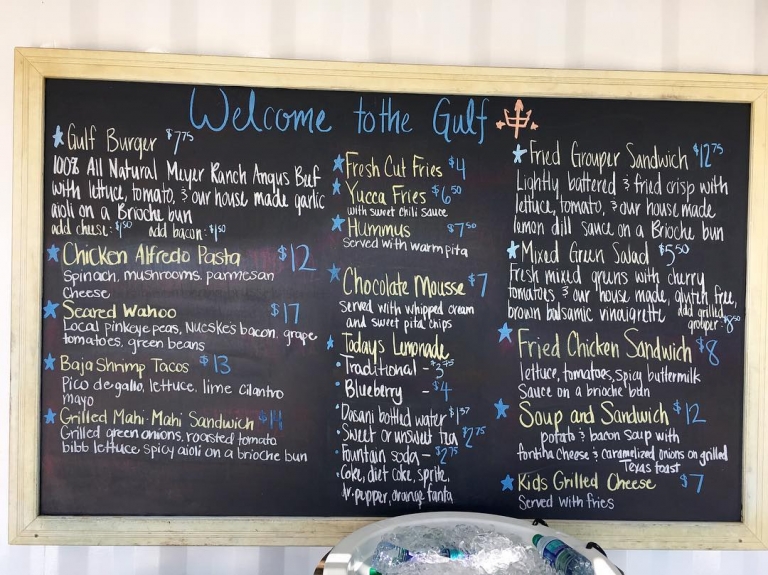 Welcome to the Gulf
Gulf Burger $7.75
100% All Natural Meyer Ranch Angus Beef
with lettuce, tomato, & our house made garlic
aioli on a Brioche bun
add cheese: $1.50 add bacon: $1.50
Chicken Alfredo Pasta $12
Spinach, mushrooms, parmesan
Cheese
Seared Wahoo $17
Local pinkeye peas, Nueskes bacon, grape
tomatoes, green beans
Baja Shrimp Tacos $13
Pico de gallo, lettuce, lime cilantro
mayo
Grilled Mahi-Mahi Sandwich $14
Grilled green onions, roasted tomato
bibb lettuce spicy aioli on a brioche bun
Fresh Cut Fries $4
Yucca Fries $6.50
with sweet chili sauce
Hummus $7.50
Served with warm pita
Chocolate Mousse $7
Served with whipped cream
and sweet pita chips
Todays Lemonade
Traditional - $3.75
Blueberry - $4
Dasani bottled water
Sweet or unsweet tea $2.75
Fountain soda - $2.75
Coke, diet coke, sprite,
dr. pepper, orange fanta
Fried Grouper Sandwich $12.75
Lightly battered & fried crisp with
lettuce, tomato, & our house made
lemon dill sauce on a Brioche bun
Mixed Green Salad $5.50
Fresh mixed greens with cherry
tomatoes & our house made, gluten free,
brown balsamic vinaigrette add grilled
grouper: $8.50
Fried Chicken Sandwich $8
lettuce, tomatoes, spicy buttermilk
Sauce on a brioche bun
Soup and Sandwich $12
potato & bacon soup with
fontina cheese & caramelized onions on grilled
Texas toast
Kids Grilled Cheese $7
Served with fries